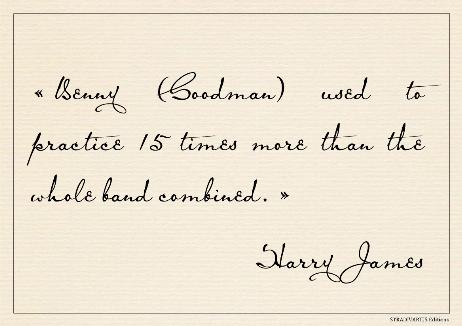 « Benny (Goodman) used to
practice 15 times more than the
whole band combined. »
Harry James
STRADIVARIUS Editions